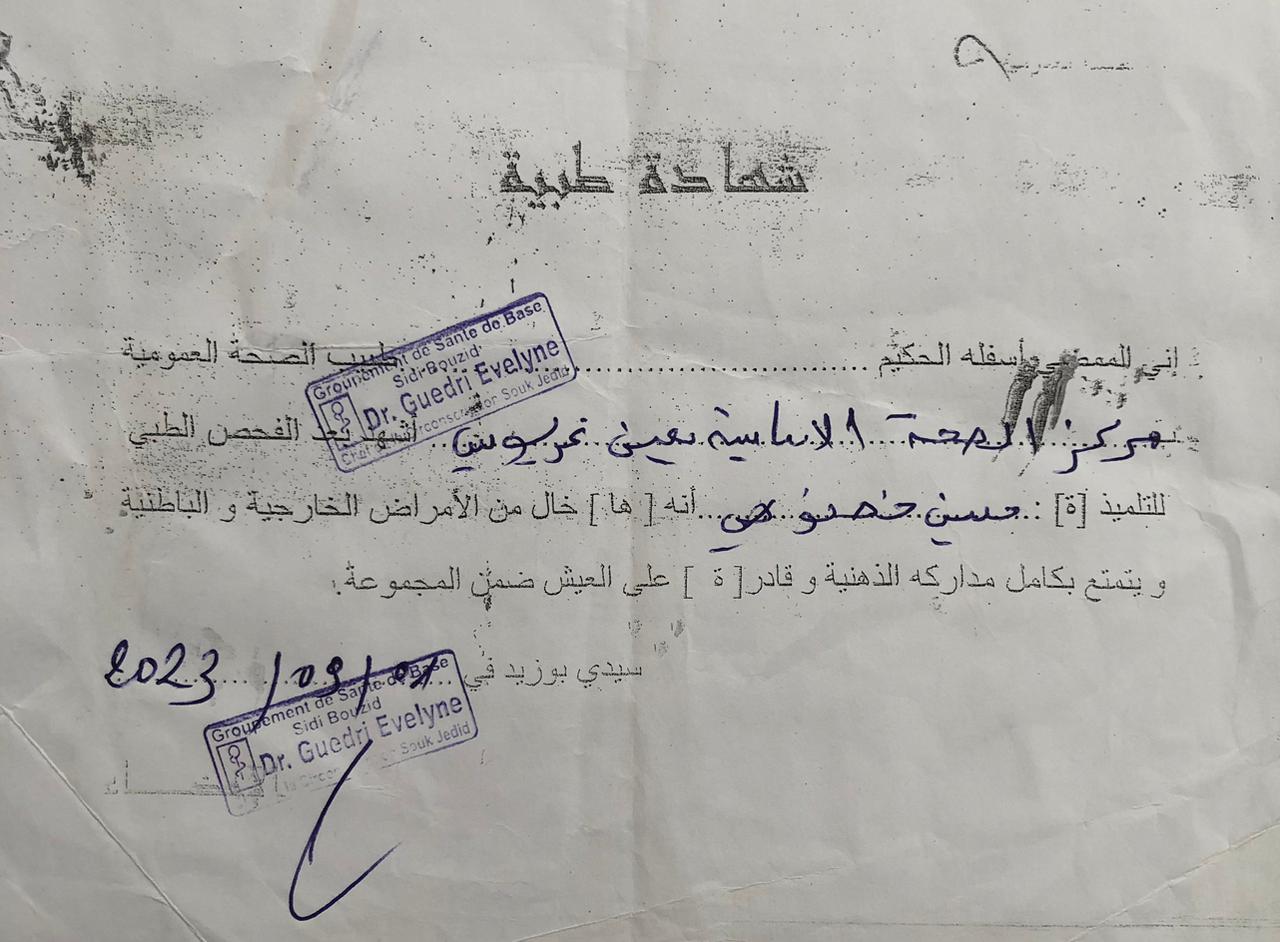 شهادة طبية
إني الممضي أسفله الحكيم ........................ طبيب الصحة العمومية
Groupement de Santé de Base
Sidi Bouzid
Dr. Guedri Evelyne
Souk Jedid
بـ مركز الصحة الاساسية بعين .. أشهد بعد الفحص الطبي
للتلميذ [ة] : حسين .. أنه [ ها ] خال من الأمراض الخارجية و الباطنية
و يتمتع بكامل مداركه الذهنية و قادر [ ة ] على العيش ضمن المجموعة.
سيدي بوزيد في 01/09/2023
Groupement de Santé de Base
Sidi Bouzid
Dr. Guedri Evelyne
Souk Jedid
الإمضـــــاء